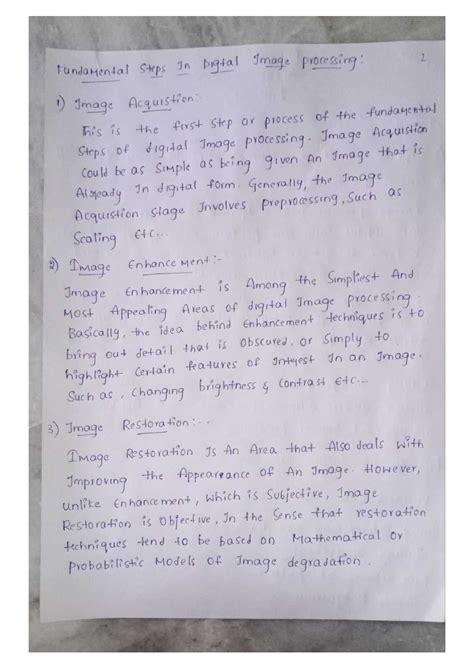 Fundamental Steps In Digital Image Processing: 2
1) Image Acquistion:
This is the first step or process of the fundamental
steps of digital Image processing. Image Acquistion
could be as simple as being given An Image that is
Already In digital form. Generally, the Image
Acquistion stage Involves preprocessing, Such as
Scaling Etc...
2) Image Enhancement:-
Image Enhancement is Among the Simpliest And
Most Appealing Areas of digital Image processing.
Basically, the idea behind Enhancement techniques is to
bring out detail that is Obscured, or Simply to
highlight Certain features of Interest In an Image.
Such as, Changing brightness & Contrast Etc...
3) Image Restoration:-
Image Restoration Is An Area that Also deals With
Improving the Appearance of An Image. However,
unlike Enhancement, Which is Subjective, Image
Restoration is Objective, In the Sense that restoration
techniques tend to be based on Mathematical Or
Probabilistic Models of Image degradation.